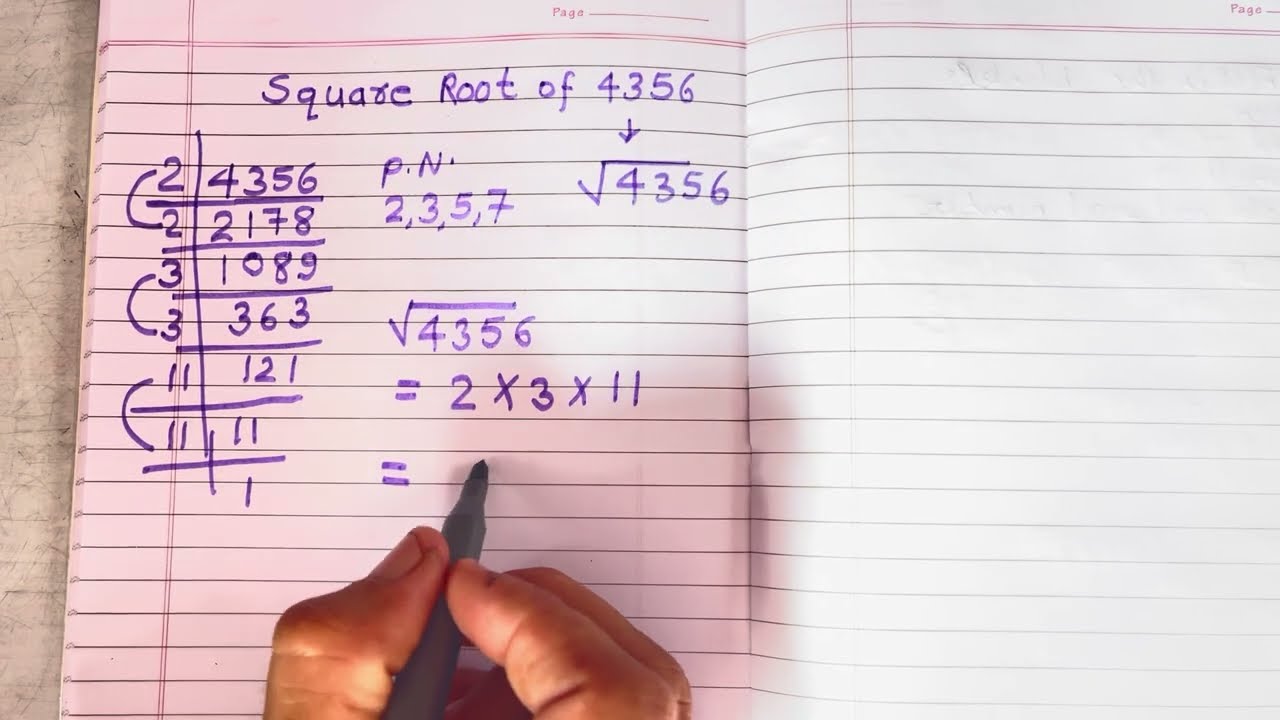 Page
Page
Square Root of 4356
↓
2 4356
P.N.
√4356
2 2178
2,3,5,7
3 1089
3 363
√4356
11 121
= 2 × 3 × 11
11 11
=
1